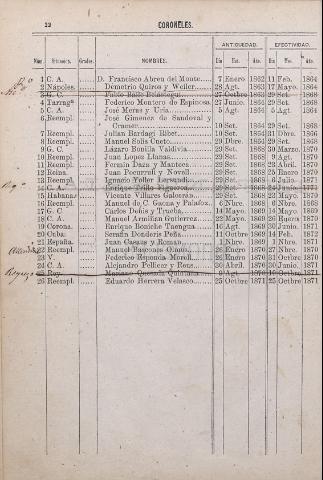 22 CORONELES.
ANTIGUEDAD. EFECTIVIDAD.
Núm. Situacion. Grados. NOMBRES. Dia Mes. Año. Dia Mes. Año.
1 C. A. D. Francisco Abreu del Monte 7 Enero 1862 11 Feb. 1864
2 Nápoles. Demetrio Quiros y Weiler 28 Agt. 1863 17 Mayo. 1864
3 G. C. Pablo Baile 27 Octbre 1863 29 Set. 1868
4 Tarrag.ª Federico Montero de Espinosa 27 Junio. 1864 29 Set. 1868
5 C. A. José Merus y Uria 5 Agt. 1864 5 Agt. 1864
6 Reempl. José Gimenez de Sandoval y
10 Set. 1864 29 Set. 1868
7 Reempl. Julian Bardagi Ribet 10 Set. 1864 31 Dbre. 1866
8 Reempl. Manuel Solis Cueto 29 Dbre. 1864 29 Set. 1868
9 G. C. Lázaro Bonila Valdivia 29 Set. 1868 30 Marzo 1870
10 Reempl. Juan Lopez Llanas 29 Set. 1868 9 Agt. 1870
11 Reempl. Fermin Daza y Montes 29 Set. 1868 23 Abril. 1870
12 Reina. Juan Pocurrull y Novell 29 Set. 1868 25 Enero 1870
13 Reempl. Ignacio Yoller Lersundi 29 Set. 1868 5 Julio. 1871
14 C. A. Enrique Trillo Figueroa 29 Set. 1868 24 Junio. 1871
15 Habana Vicente Villares Galorran 29 Set. 1868 30 Mayo. 1870
16 Reempl. Manuel de C. Gaona y Palafox 6 Nbre. 1868 6 Nbre. 1868
17 G. C Carlos Deñis y Trueba 14 Mayo. 1869 14 Mayo. 1869
18 C. A. Manuel Armiñan Gutierrez 22 Mayo. 1869 28 Enero. 1870
19 Corona. Enrique Boniche Taengua 16 Agt. 1869 30 Junio. 1871
20 Cuba. Serafin Donderis Peña 11 Octbre 1869 14 Feb. 1872
21 España. Juan Casaus y Roman 1 Nbre. 1869 1 Nbre. 1869
22 Reempl. Manuel Bascones Olanos 30 Enero. 1870 27 Nbre. 1870
23 V. Federico Reponda Morell 30 Enero. 1870 30 Enero. 1870
24 C. A. Alejandro Pellicer y Rous 30 Abril. 1870 30 Junio. 1871
25 Rey. Mariano Quesada Quintana 9 Agt. 1870 10 Octbre 1871
26 Reempl. Eduardo Herrera Velasco 25 Octbre 1871 25 Octbre 1871